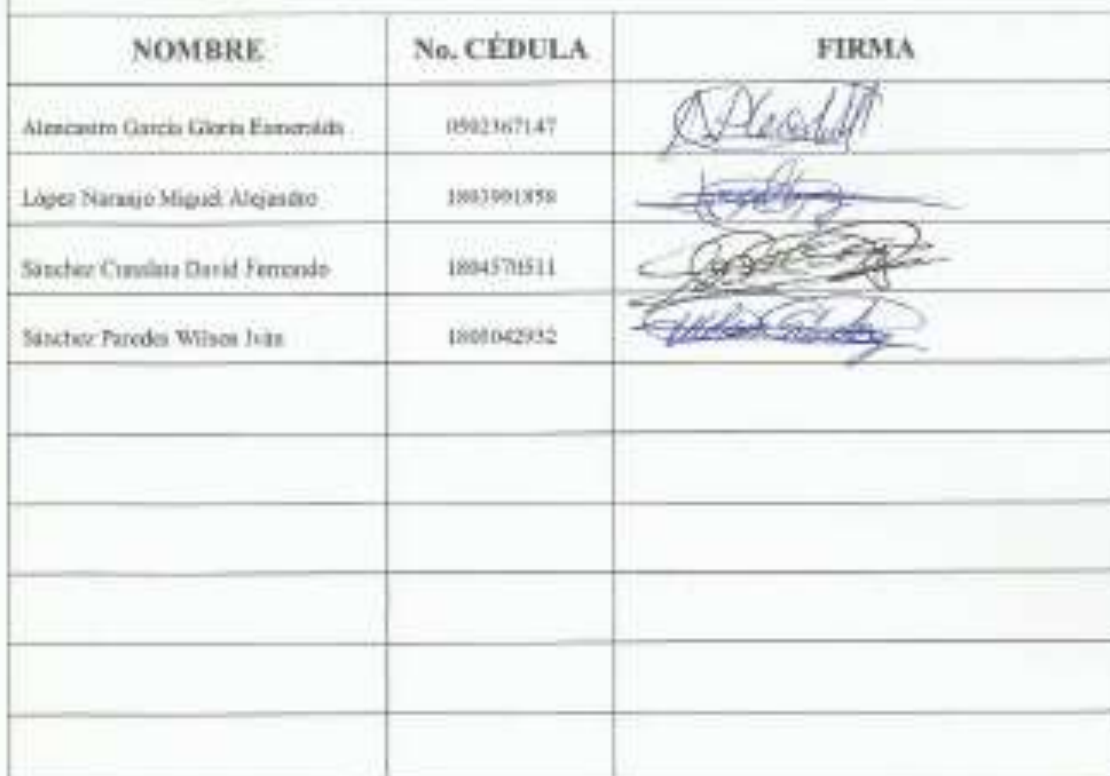 NOMBRE No. CÉDULA FIRMA
Alencastro García Gloria Esmeralda 0502367147
López Naranjo Miguel Alejandro 1803991858
Sánchez David Fernando 1804570511
Sánchez Paredes Wilson Iván